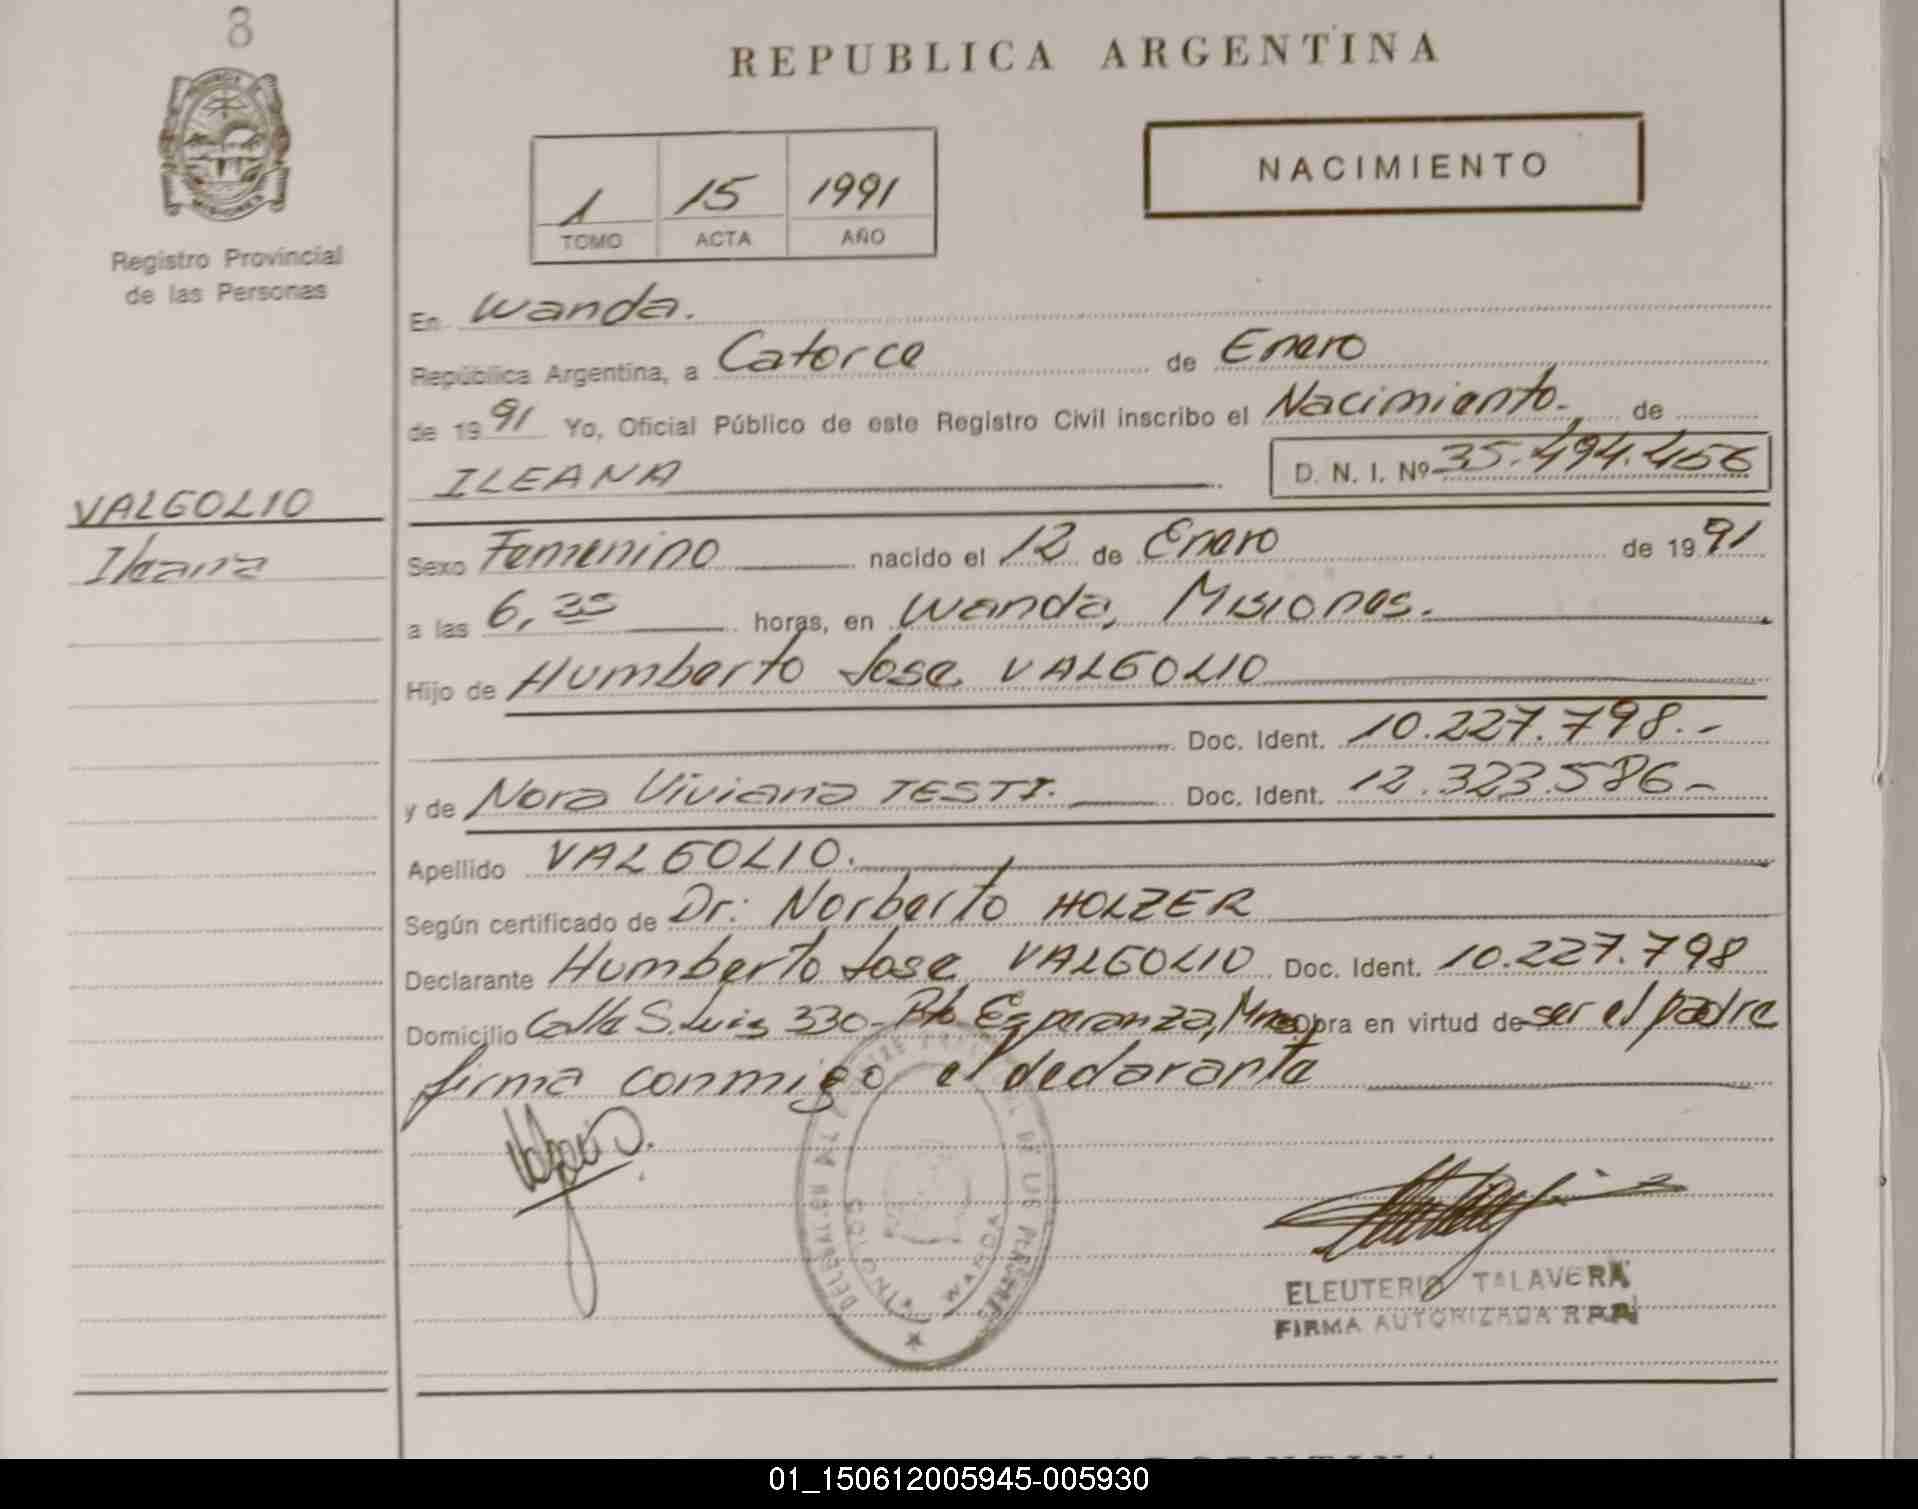 8
REPUBLICA ARGENTINA
NACIMIENTO
1 15 1991
TOMO ACTA AÑO
MISIONES
Registro Provincial
de las Personas
En Wanda.
República Argentina, a Catorce de Enero
de 1991 Yo, Oficial Público de este Registro Civil inscribo el Nacimiento. de
ILEANA D. N. I. Nº 35.494.456
VALGOLIO
Ileana
Sexo Femenino nacido el 12 de Enero de 1991
a las 6,35 horas, en Wanda, Misiones.
Hijo de Humberto Jose VALGOLIO
Doc. Ident. 10.227.798.-
y de Nora Viviana TESTI. Doc. Ident. 12.323.586-
Apellido VALGOLIO.
Según certificado de Dr: Norberto HOLZER
Declarante Humberto Jose VALGOLIO Doc. Ident. 10.227.798
Domicilio Calle S. Luis 330- Pto Esperanza, Mnes Obra en virtud de ser el padre
firma conmigo el declarante
WANDA
ELEUTERIO TALAVERA
FIRMA AUTORIZADA R.P.P.
01_150612005945-005930